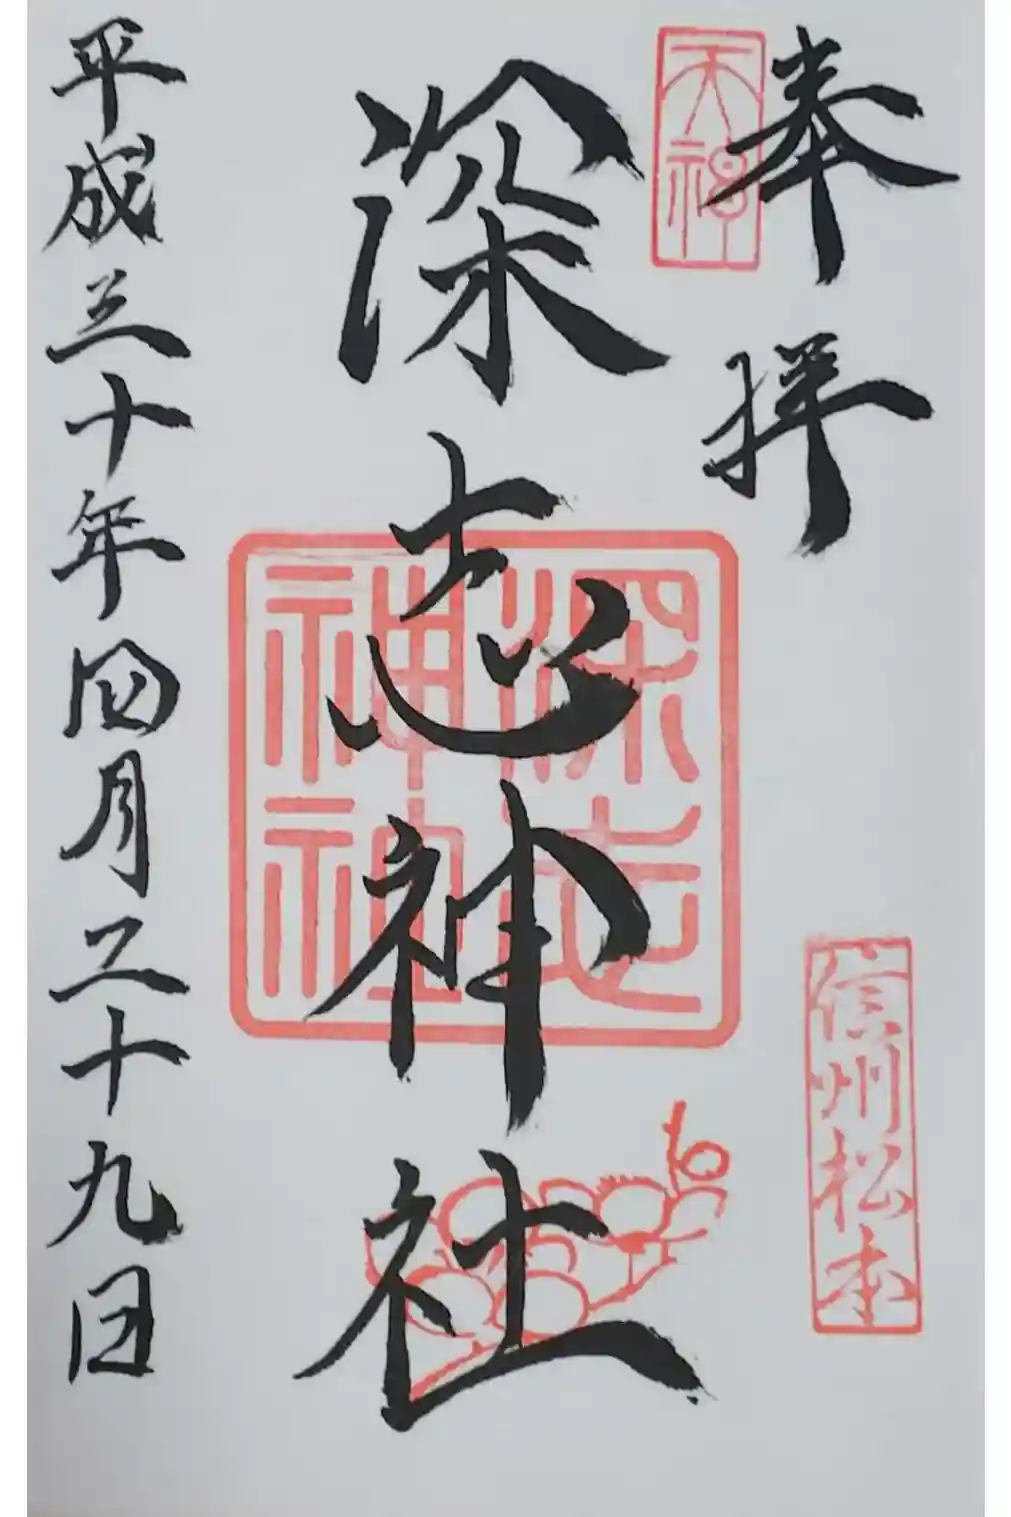 奉拝
天神
信州松本
深志神社
深志
神社
平成三十年四月二十九日